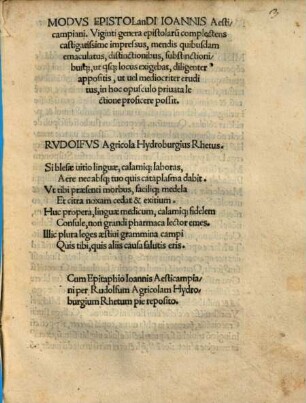 MODVS EPISTOLanDI IOANNIS Aesti
campiani. Viginti genera epistolarū complectens
castigatissime impressus, mendis quibusdam
emaculatus, distinctionibus, substinctioni
busq;, ut q̃sq; locus exigebat, diligenter
appositis, ut uel mediocriter erudi
tus, in hoc opusculo priuata le
ctione proficere possit.
RVDOlFVS Agricola Hydroburgius Rhetus.
Si blesæ uitio linguæ, calamiq; laboras,
Aere nec absq; tuo quis cataplasma dabit.
Vt tibi præsenti morbus, faciliq; medela
Et citra noxam cedat & exitium.
Huc propera, linguæ medicum, calamiq; fidelem
Consule, non grandi pharmaca lector emes.
Illic plura leges æstiui grammina campi
Quis tibi, quis aliis causa salutis eris.
Cum Epitaphio Ioannis Aesticampia
ni per Rudolfum Agricolam Hydro
burgium Rhetum pie reposito.